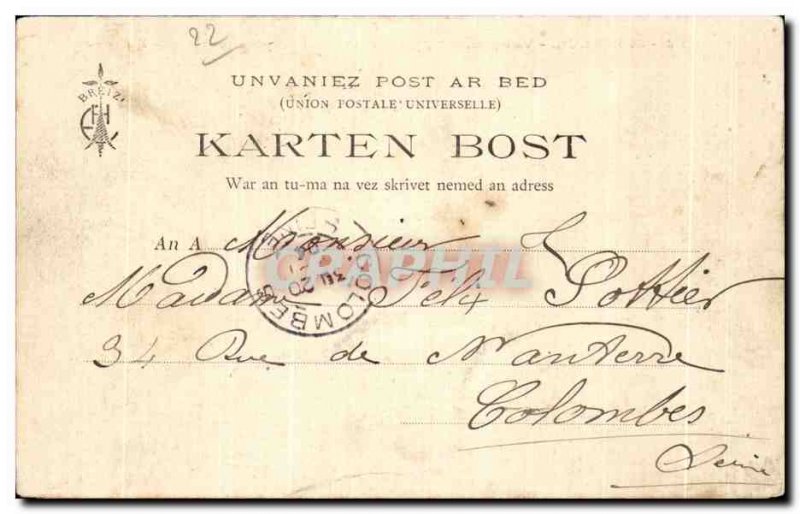 22
UNVANIEZ POST AR BED
BREIZ
(UNION POSTALE UNIVERSELLE)
KARTEN BOST
War an tu-ma na vez skrivet nemed an adress
An A Monsieur &
Madame Félix Pottier
34 Rue de Nanterre
Colombes
Seine
COLOMBES
CRAPHIL